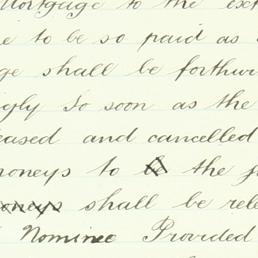 Mortgage to the ext
e to be so paid as
ge shall be forthwi
ngly so soon as the
eased and cancelled
moneys to the
shall be rele
Nominee Provided